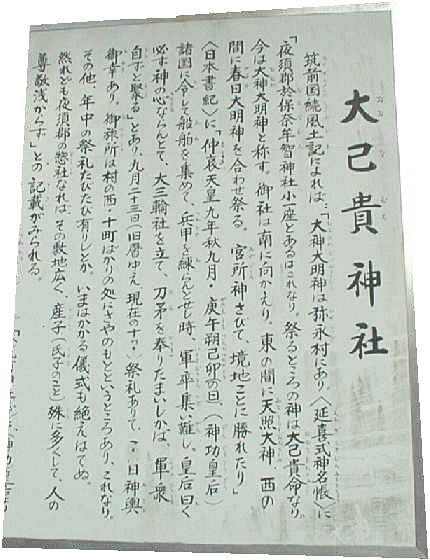 大己貴神社
筑前国続風土記によれば…「大神大明神は弥永村にあり〈延喜式神名帳〉に
「夜須郡於保奈牟智神社小一座とあるはこれなり。祭るところの神は大己貴命なり。
今は大神大明神と称す。御社は南に向かえり。東の間に天照大神、西の
間に春日大明神を合わせ祭る。宮所神さびて、境地ことに勝れたり」
〈日本書紀〉に「仲哀天皇九年秋九月・庚午朔己卯の日、(神功皇后)
諸国に令して船舶を集めて、兵甲を練らんとせし時、軍卒集い難し。皇后曰く
必ず神の心ならんとて、大三輪社を立て、刀矛を奉りたまいしかば、軍衆
自ずと聚る」とあり、九月二十三日(旧暦ゆえ現在の十 )祭礼ありて、この日神輿
御幸あり。御旅所は村の西・十町ばかりの処にさやのもとというところあり、これなり。
その他、年中の祭礼たびたび有りしとか、いまはかかる儀式も絶えはてぬ。
然れども夜須郡の惣社なれば、その敷地広く、産子(氏子のこと)殊に多くして、人の
尊敬浅からず」との記載がみられる。